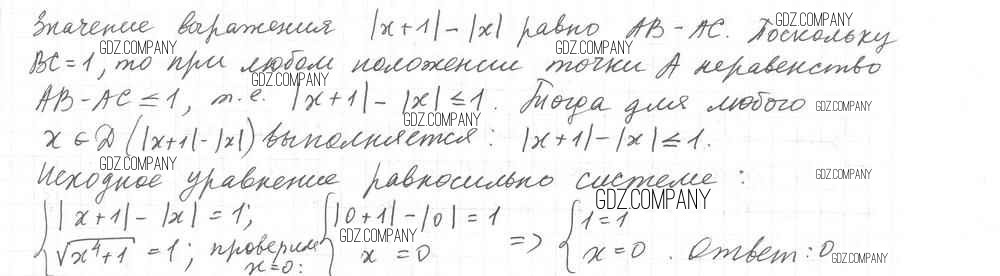 Значение выражения |x+1|-|x| равно AB-AC. Поскольку
BC=1, то при любом положении точки A неравенство
AB-AC≤1, т.е. |x+1|-|x|≤1. Тогда для любого
x∈D(|x+1|-|x|) выполняется: |x+1|-|x|≤1.
Исходное уравнение равносильно системе:
{|x+1|-|x|=1; {|0+1|-|0|=1 {1=1
{√x⁴+1=1; проверим x=0: {x=0 => {x=0. Ответ: 0
GDZ.COMPANY
GDZ.COMPANY
GDZ.COMPANY
GDZ.COMPANY
GDZ.COMPANY
GDZ.COMPANY
GDZ.COMPANY
GDZ.COMPANY
GDZ.COMPANY
GDZ.COMPANY
GDZ.COMPANY
GDZ.COMPANY